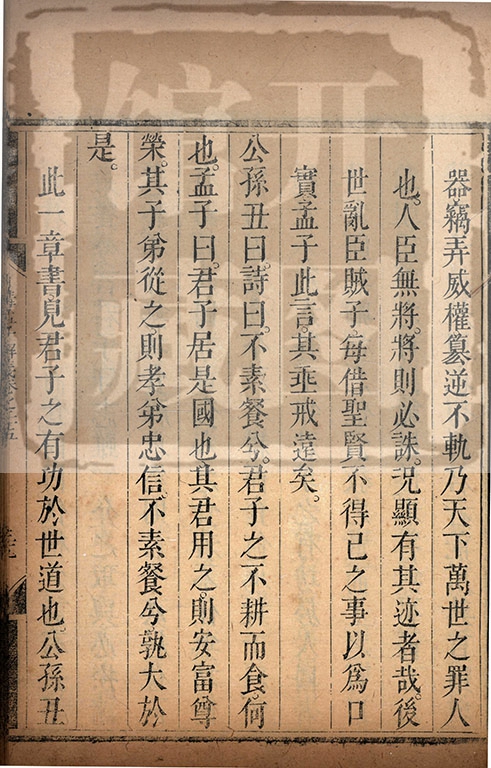 器竊弄威權篡逆不軌乃天下萬世之罪人
也。人臣無將。將則必誅。況顯有其迹者哉。後
世亂臣賊子每借聖賢不得已之事以為口
實。孟子此言。其垂戒遠矣。
公孫丑曰。詩曰。不素餐兮。君子之不耕而食。何
也。孟子曰。君子居是國也。其君用之。則安富尊
榮。其子弟從之。則孝弟忠信。不素餐兮。孰大於
是。
此一章書見君子之有功於世道也。公孫丑